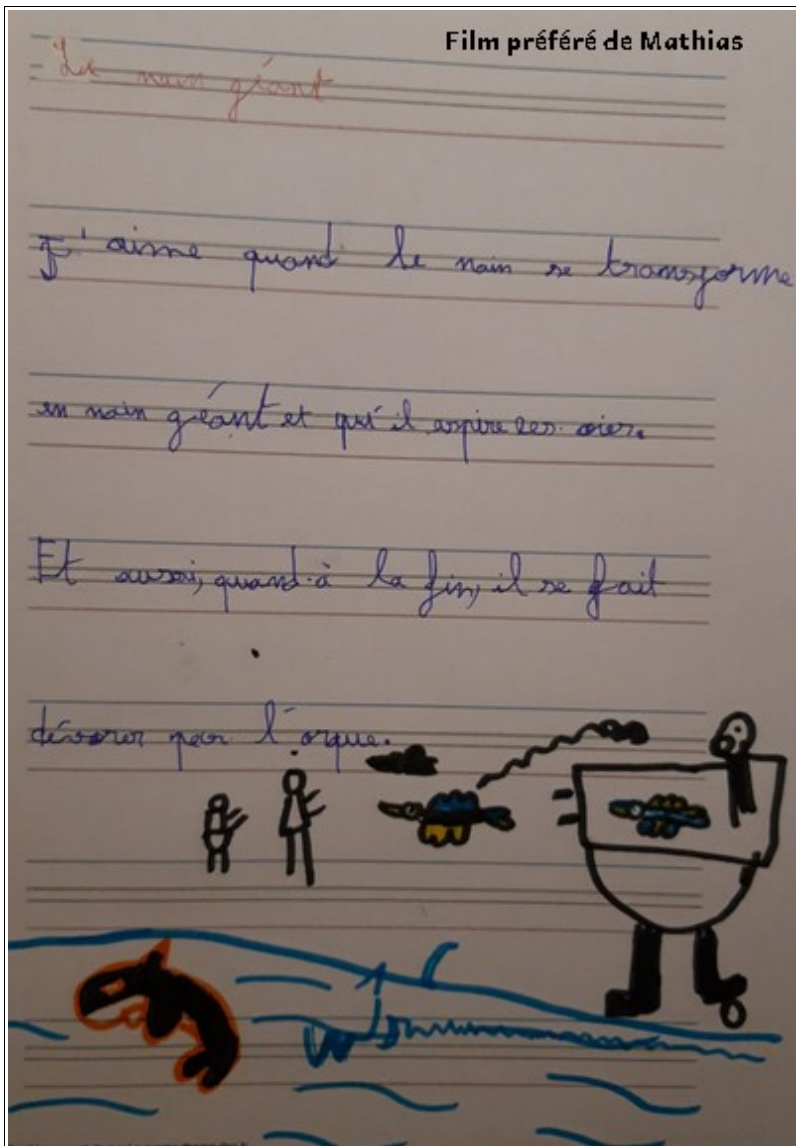 Film préféré de Mathias
Le nain géant
J'aime quand le nain se transforme
en nain géant et qu'il aspire les oies.
Et aussi, quand à la fin, il se fait
dévorer par l'orque.